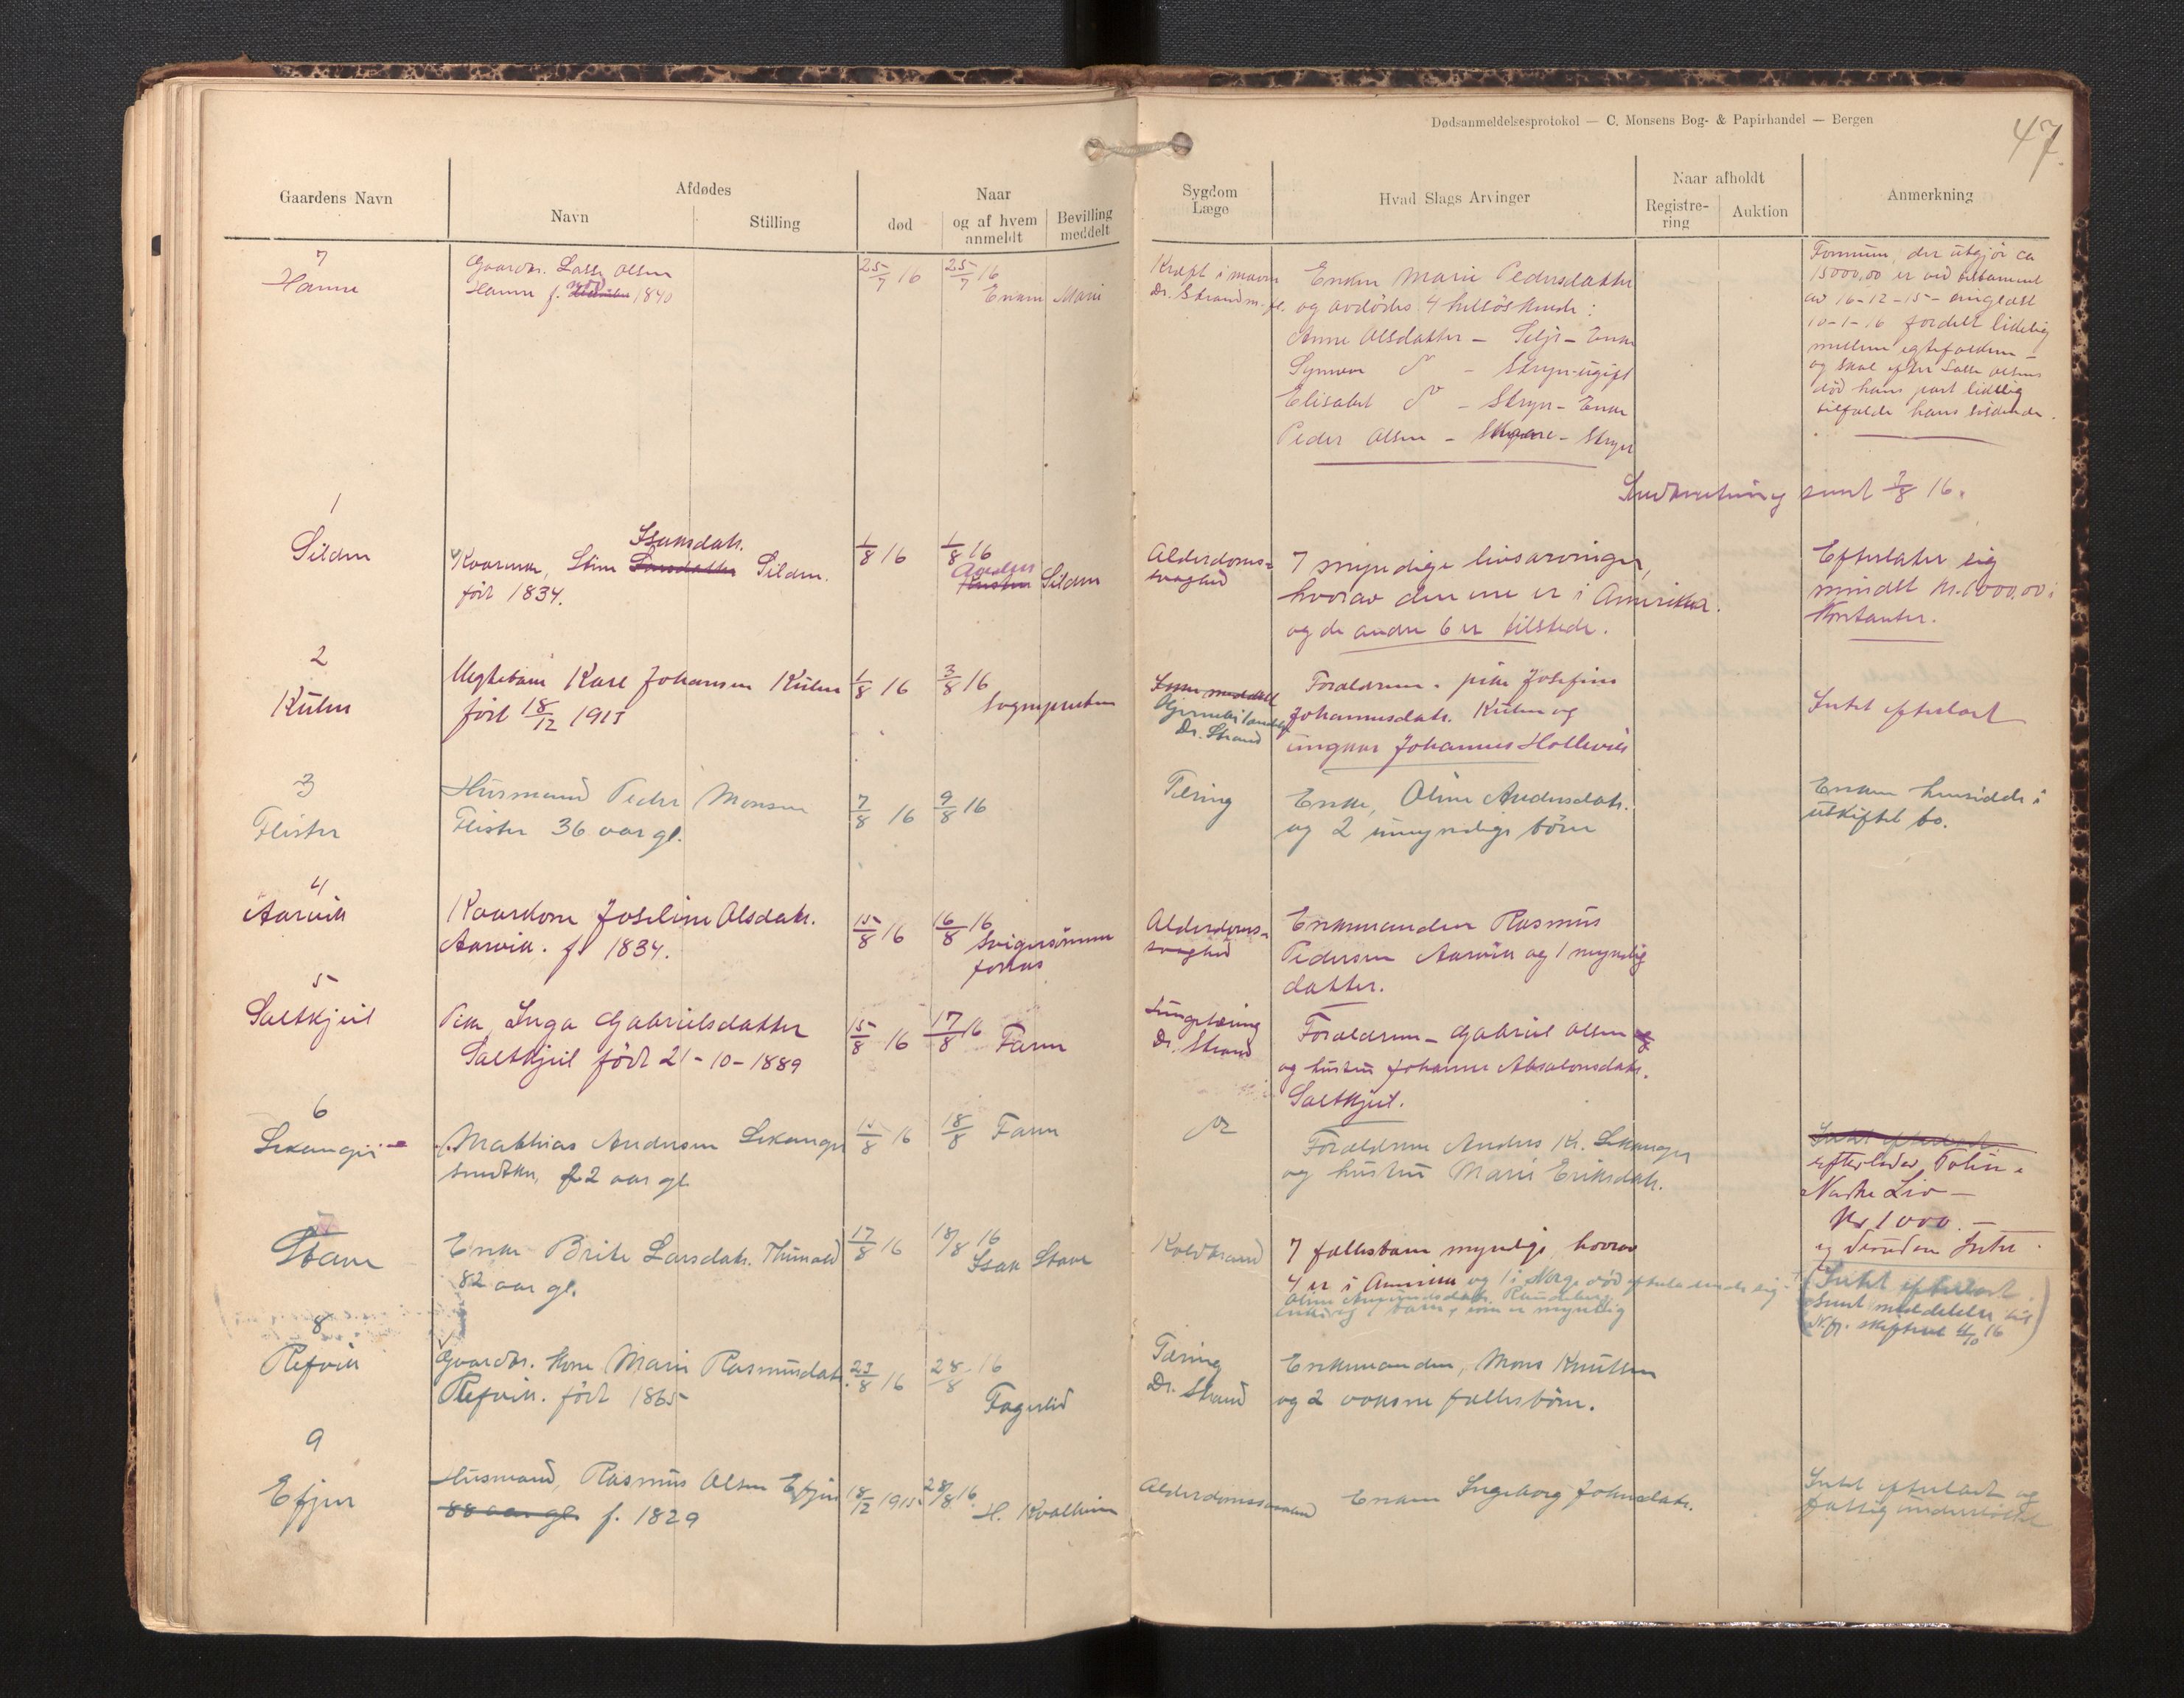 Dødsanmeldelsesprotokol — C. Monsens Bog- & Papirhandel — Bergen
47.
Gaardens Navn
Afdødes
Navn
Stilling
Naar
død
og af hvem anmeldt
Bevilling meddelt
Sygdom
Læge
Hvad Slags Arvinger
Naar afholdt
Registrering
Auktion
Anmerkning
7
Gaardbr. Lasse Olsen
Hamn f. 1840
25/7 16
25/7 16
Enken Marie
Kræft i maven
Dr. Strand m. fl.
Enken Marie Pedersdatter
og avdødes 4 helsøskende:
Anne Olsdatter - Selje - Enke
Synneve do - Stryn-ugift
Elisabet do - Stryn - Enke
Peder Olsen - Skaare - Stryn
Formuen, der utgjør ca
15000,00 er ved testament
av 16-12-15 - tinglæst
10-1-16 fordelt likelig
mellem egtefolkene -
og skal efter Lasse Olsens
død hans part likelig
tilfalde hans søskende.
Indberetning sendt 3/8 16.
1
Silden
Isaksdatr.
Kaarenke, Stine Larsdatter Silden.
født 1834.
1/8 16
1/8 16
Silden
Alderdoms-
svaghed
7 myndige livsarvinger,
hvorav den ene er i Amerika.
og de andre 6 er tilstede.
Efterlater sig
mindst kr. 1000,00 i
Kontanter.
2
Kulen
Uegtebarn Karl Johansen Kulen
født 18/12 1915
1/8 16
3/8 16
Sognepresten
Dr. Strand
Forældrene. pike Josefine
Johannesdatr. Kulen og
ungkar Johannes Hollevik
Intet efterlatt
3
Flister
Husmand Peder Monsen
Flister 36 aar gl.
7/8 16
9/8 16
Tæring
Enke, Oline Andersdatr.
og 2 umyndige børn
Enken hensidder i
uskiftet bo.
4
Aarvik
Kaarkone Joseline Olsdatr.
Aarvik. f. 1834.
15/8 16
16/8 16
Svigersønnen
Jonas
Alderdoms-
svaghed
Enkemanden Rasmus
Pedersen Aarvik og 1 myndig
datter.
5
Saltkjeil
Pike, Inga Gabrielsdatter
Saltkjeil født 21-10-1889
15/8 16
17/8 16
Faren
Lungetæring
Dr. Strand
Forældrene - Gabriel Olsen og
og hustru Johanne Absalonsdatr.
Saltkjeil.
6
Mathias Andersen Lekanger
22 aar gl
15/8 16
18/8 Faren
do
Forældrene Anders Kr. Lekanger
og hustru Marie Eriksdatr.
Intet efterladt
efterlader Polise i
Norske Liv -
Kr 1000.-
og desuden Intet.
7
Stave
Enke Brite Larsdatr.
82 aar gl.
17/8 16
18/8 16
Isak Stave
Koldbrand
7 fællesbarn myndige, hvorav
4 er i Amerika og 1 i Norge død efterladende sig
1 barn, som er myndig
(Intet efterlatt.
Sendt meddelelse til
N.fj. skifteret 16)
8
Refvik
Gaardbr. kone Marie Rasmusdatr.
Refvik. født 1865
23/8 16
28/8 16
Fagerlid
Tæring
Dr. Strand
Enkemanden, Mons Knutsen
og 2 voksne fællesbørn.
9
Efjen
Husmand, Rasmus Olsen Efjen
88 aar gl. f. 1829
18/12 1915
28/8 16.
H. Kvalheim
Enken Ingeborg Johnsdatr.
Intet efterlatt og
fattigunderstøttet